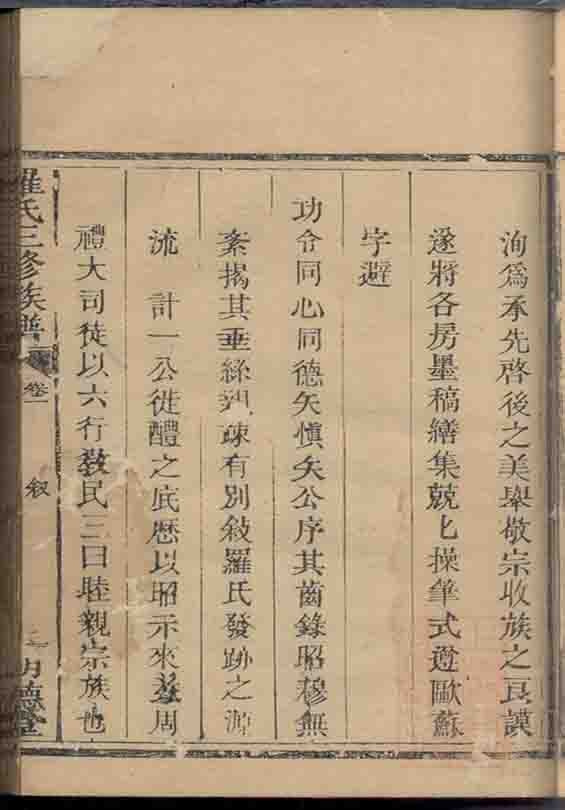 洵爲承先啓後之美舉敬宗收族之良謨
遂將各房墨稿繕集兢匕操筆式遵歐蘇
字避
功令同心同德矢愼矢公序其齒錄昭穆無
紊揭其垂絲親疎有別敍羅氏發跡之源
流 計一公徙醴之底歷以昭示來兹周
禮大司徒以六行敎民三曰睦親宗族也
羅氏三修族譜 卷一 叙 明德堂